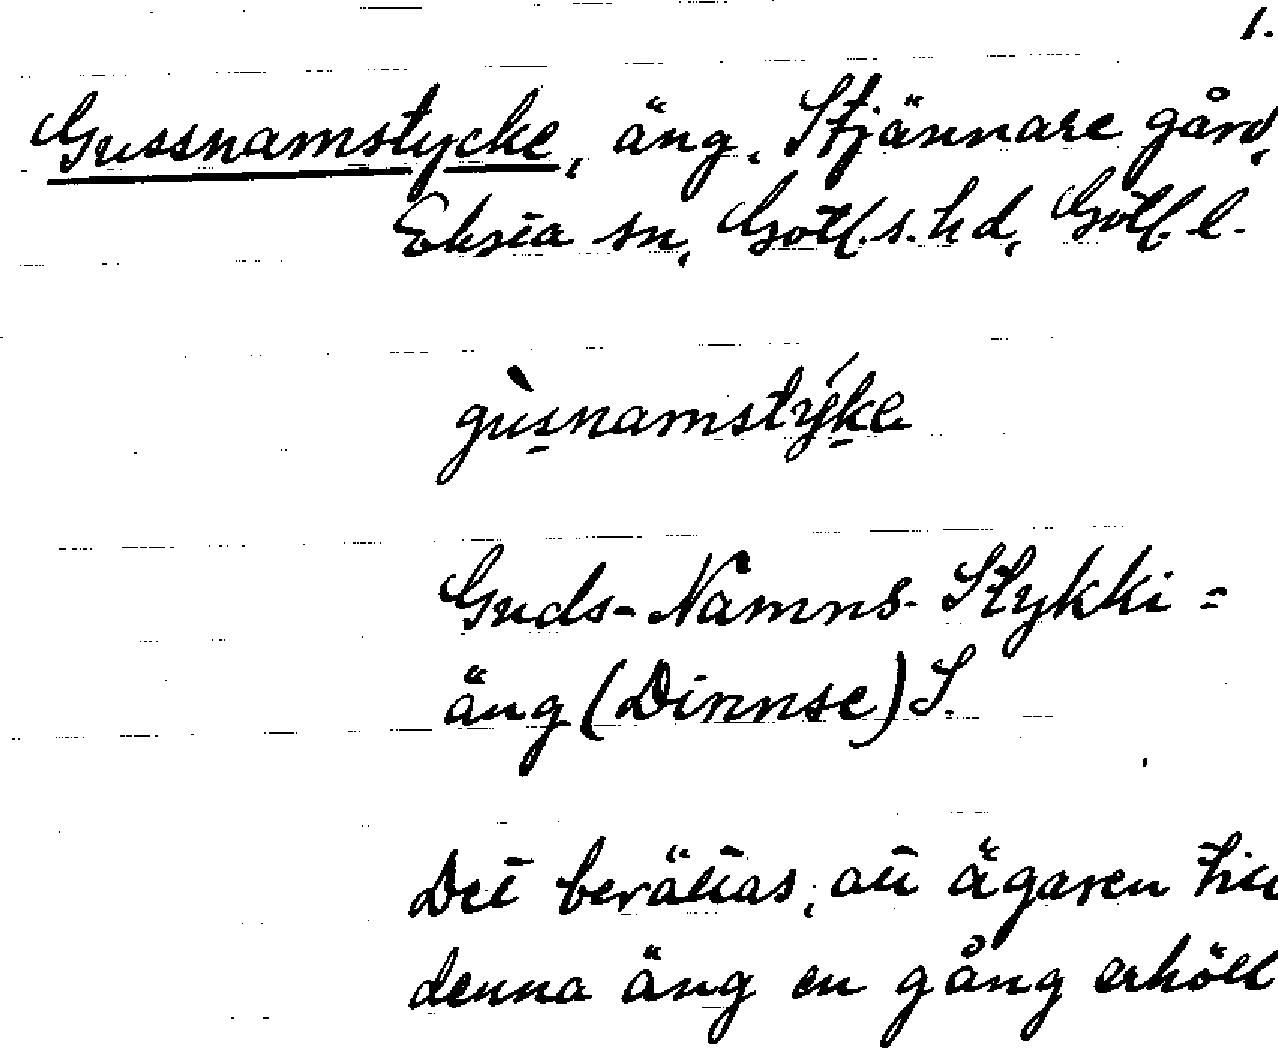 1.
Gussnamstycke, äng, Stjännare gård,
Eksta sn, Gotl. s. hd, Gotl. l.
gùsnamstýke
Guds-Namns-Stykki =
äng (Dinnse) S.
Det berättas, att ägaren till
denna äng en gång erhöll